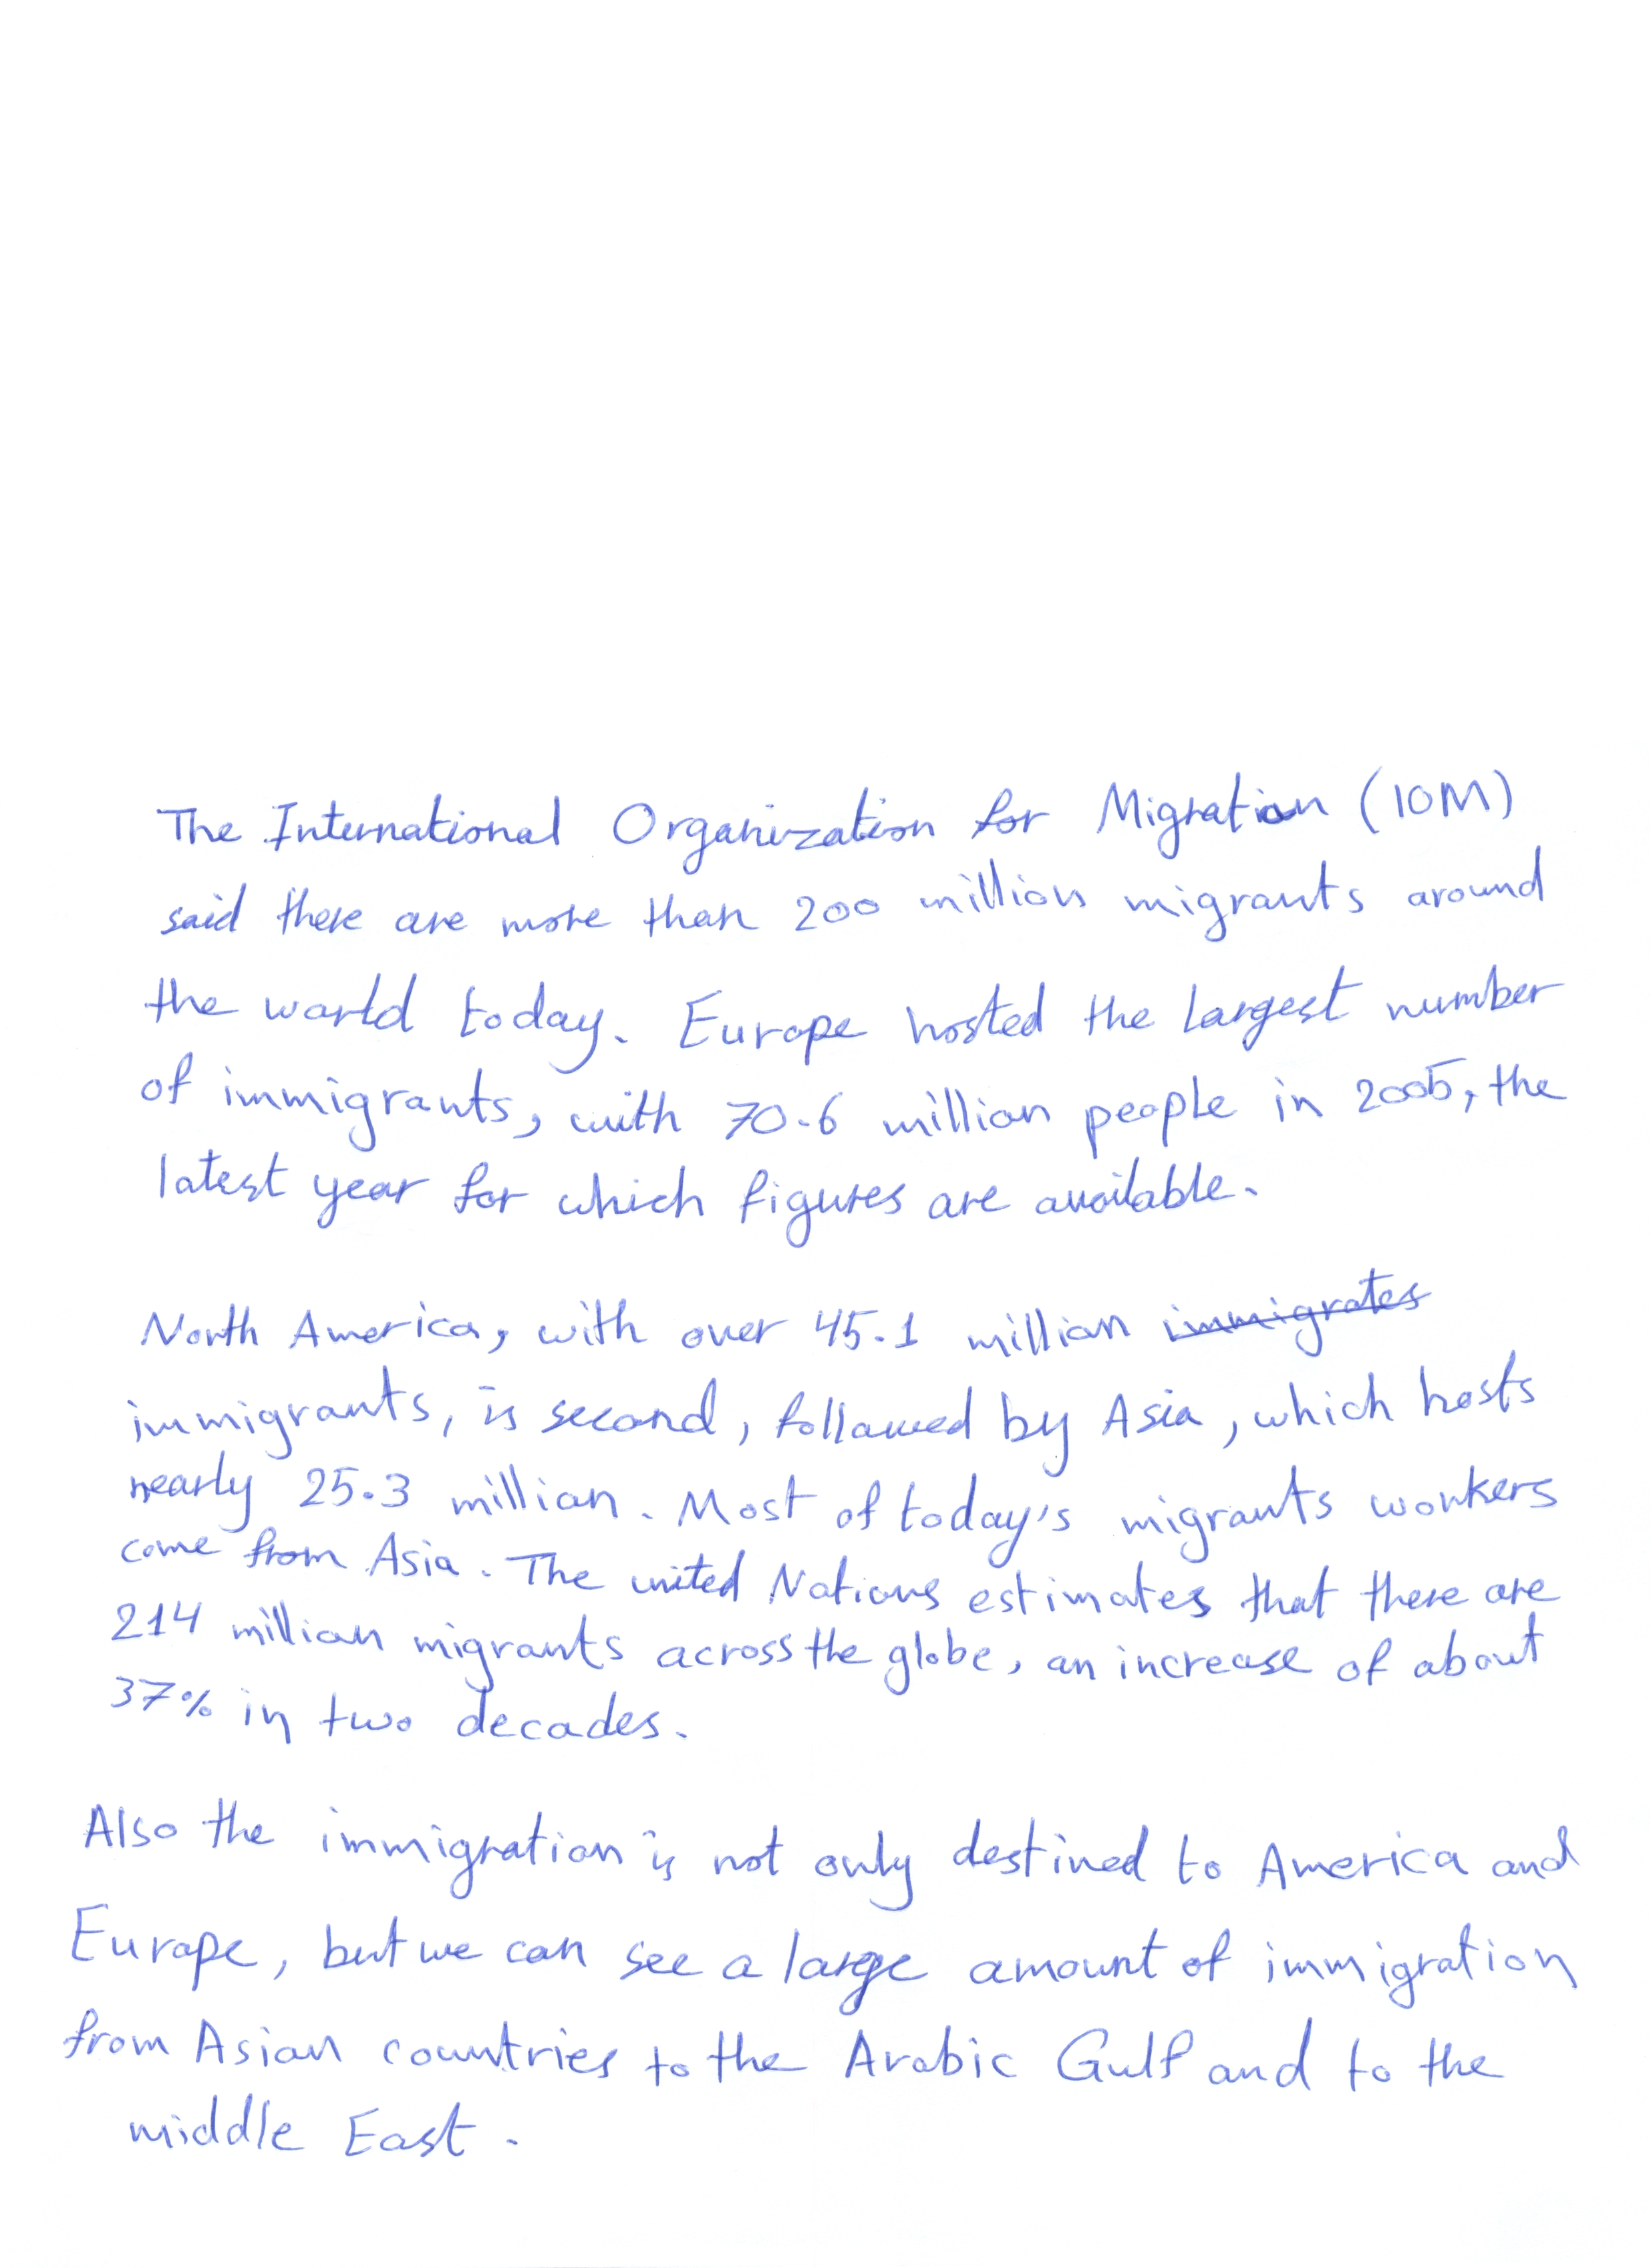 The International Organization for Migration (IOM)
said there are more than 200 million migrants around
the world today. Europe hosted the largest number
of immigrants, with 70.6 million people in 2005, the
latest year for which figures are available.
North America, with over 45.1 million ~~immigrates~~
immigrants, is second, followed by Asia, which hosts
nearly 25.3 million. Most of today's migrants workers
come from Asia. The united Nations estimates that there are
214 million migrants across the globe, an increase of about
37% in two decades.
Also the immigration is not only destined to America and
Europe, but we can see a large amount of immigration
from Asian countries to the Arabic Gulf and to the
middle East.